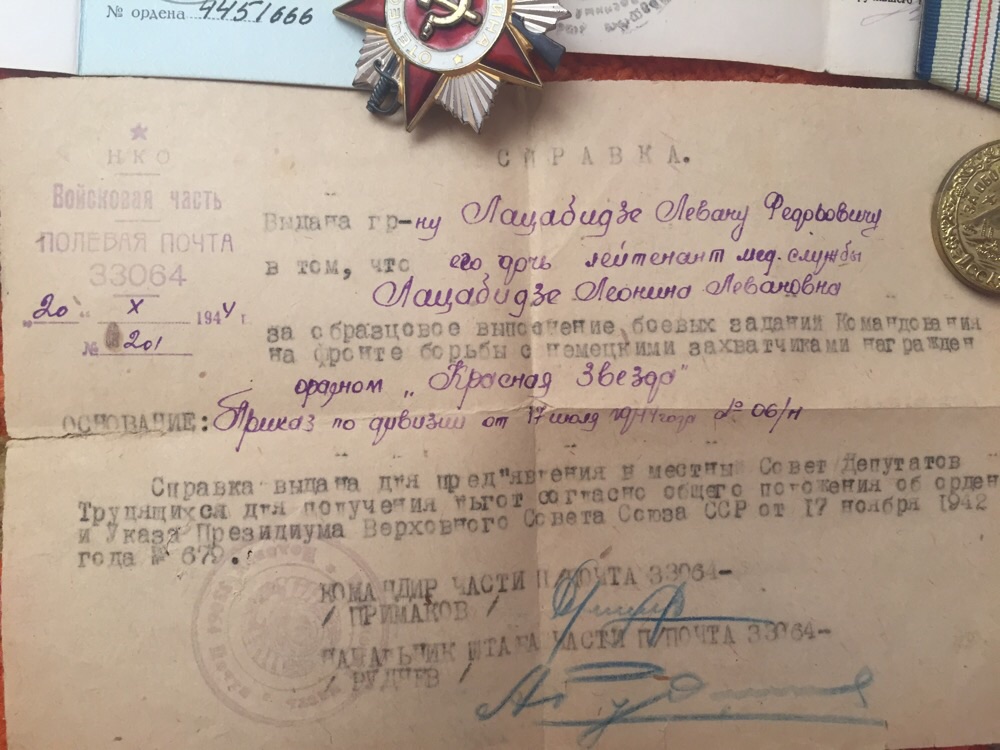 № ордена 4451666
ОТЕЧЕ
НКО
Войсковая часть
ПОЛЕВАЯ ПОЧТА
33064
"20" X 1944 г.
№ 201
СПРАВКА.
Выдана гр-ну Лацабидзе Левану Федоровичу
в том, что его дочь лейтенант мед. службы
Лацабидзе Леонина Левановна
за образцовое выполнение боевых заданий Командования
на фронте борьбы с немецкими захватчиками награжден
орденом „Красная Звезда"
ОСНОВАНИЕ: Приказ по дивизии от 17 июля 1944 года № 06/н
Справка выдана для пред"явления в местный Совет Депутатов
Трудящихся для получения льгот согласно общего положения об орден
и Указа Президиума Верховного Совета Союза ССР от 17 ноября 1942
года № 679.
КОМАНДИР ЧАСТИ П/ПОЧТА 33064-
/ ПРИМАКОВ /
НАЧАЛЬНИК ШТАБА ЧАСТИ П/ПОЧТА 33064-
/ РУДЧЕВ /